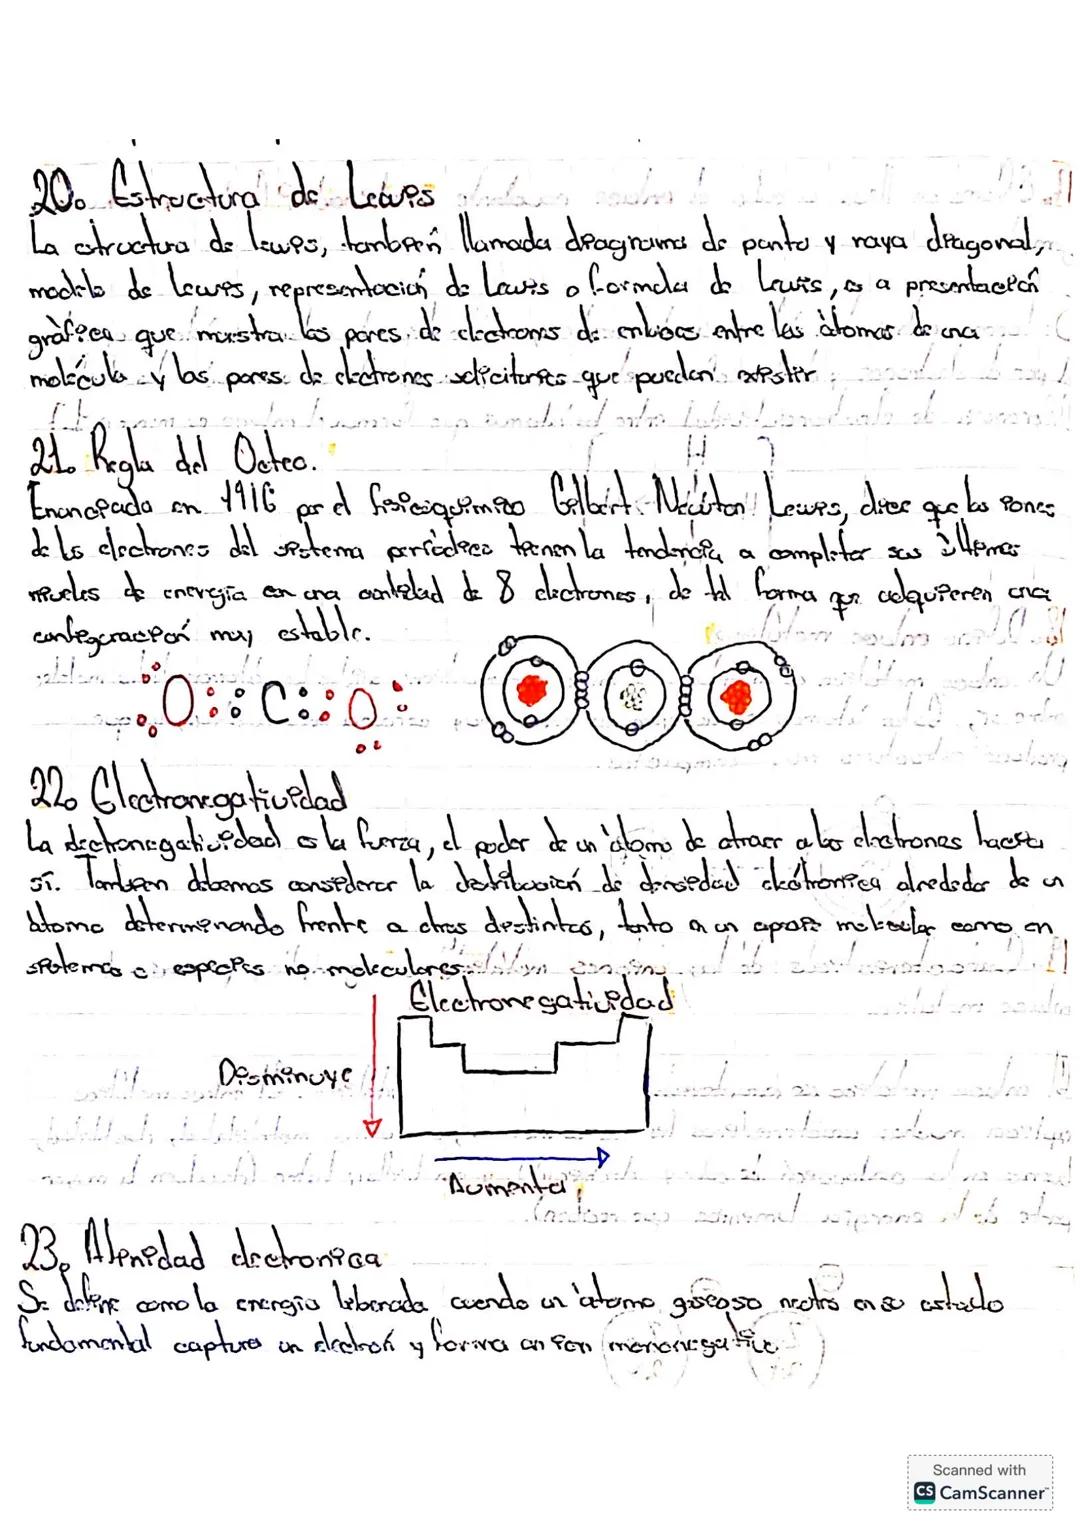 20. Estructura de Lewis
La estructura de lewis, también llamada diagrama de punto y raya diagonal,
modelo de Lewis, representación de Lewis o formula de Lewis, es a presentación
gráfica que muestra los pares de electrones de enlaces entre los átomos de una
molécula y los pares de electrones solicitarios que pueden existir
21. Regla del Octeo.
Enunciada en 1916 por el fisicoquimico Gilbert Newton Lewis, dice que los iones
de los electrones del sistema periódico tienen la tendencia a completar sus últimos
niveles de energia con una cantidad de 8 electrones, de tal forma que adquieren una
configuración muy estable.
O C O
22. Electronegatividad
La electronegatividad es la fuerza, el poder de un átomo de atraer a los electrones hacia
sí. Tambien debemos considerar la distribución de densidad electrónica alrededor de un
átomo determinando frente a otros distintos, tanto en un molecular como en
sistemas o especies no moleculares.
Electronegatividad
Disminuye
Aumenta
23. Afinidad electronica
Se define como la energia liberada cuando un átomo gaseoso neutro en su estado
fundamental captura un electrón y forma un ion mononegativo
Scanned with
CS CamScanner